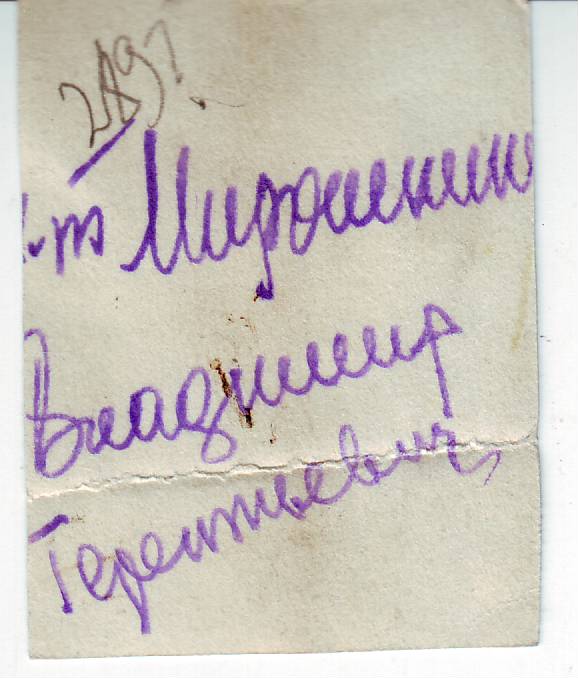 289?
-т Мирошнич
Владимир
Терентьевич,